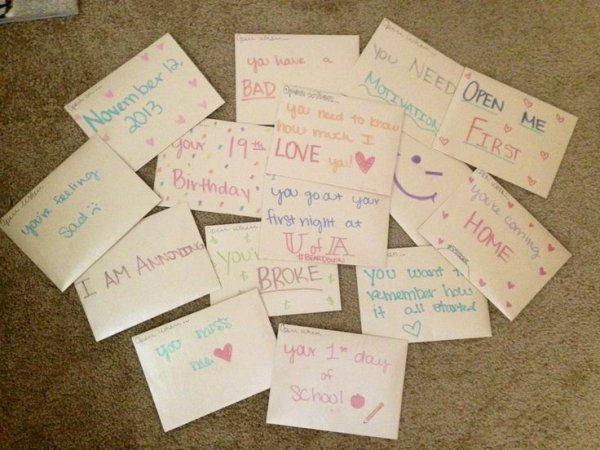 Open when...
November 12,
2013
Open when...
you have a
BAD
Open when...
you NEED
MOTIVATION
OPEN ME
FIRST
Open when...
you need to know
how much I
LOVE you!
your 19th
Birthday
Open when...
you're feeling
sad :(
I AM ANNOYING
you go at your
first night at
U of A
#BEARDOWN
you're coming
HOME
Open when...
You're
BROKE
when...
you want to
remember how
it all started
Open when...
you miss
me
Open when...
your 1st day
of
School